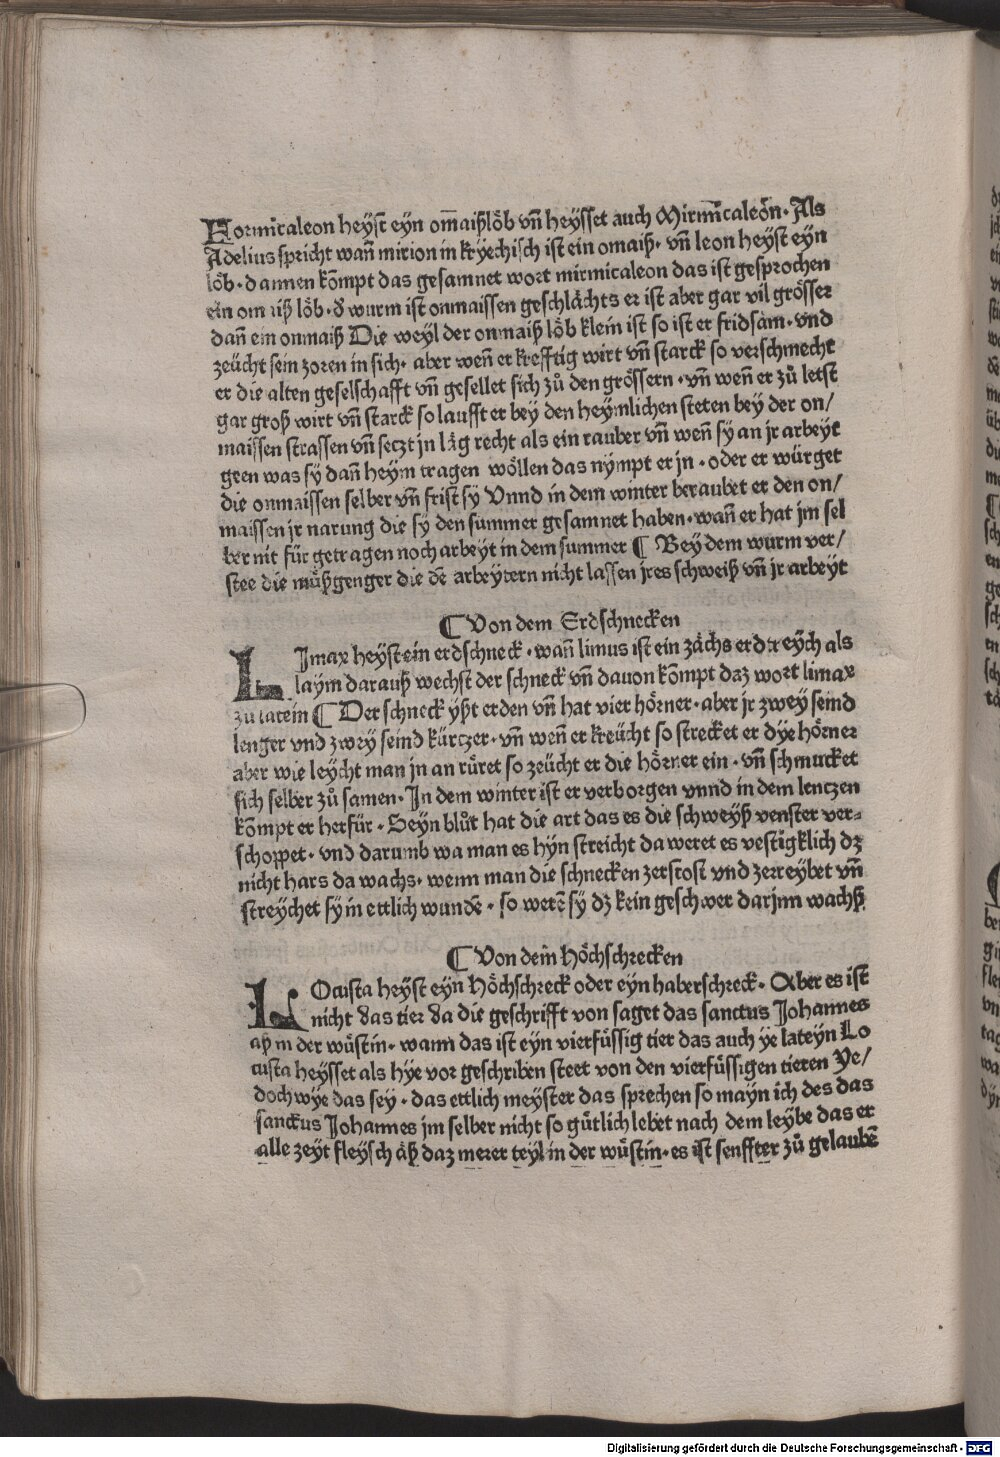 Formicaleon heyst eyn om̄aißlöb vn̄ heysset auch Mirmicaleon. Als
Adelius spricht wan̄ mirion in kryechisch ist ein omaiß. vn̄ leon heyst eyn
löb. dannen kōmpt das gesamnet wort mirmicaleon das ist gesprochen
ein omaiß löb. d̄ wurm ist onmaissen geschlächts er ist aber gar vil grösser
dan̄ ein onmaiß Die weyl der onmaiß löb klein ist so ist er fridsam. vnd
zeücht sein zoren in sich. aber wen̄ er krefftig wirt vn̄ starck so verschmecht
er die alten geselschafft vn̄ gesellet sich zů den grössern. vn̄ wen̄ er zů letst
gar groß wirt vn̄ starck so laufft er bey den heymlichen steten bey der on/
maissen strassen vn̄ seczt jn läg recht als ein rauber vn̄ wen̄ sy an jr arbeyt
geen was sy dan̄ heym tragen wöllen das nympt er jn. oder er würget
die onmaissen selber vn̄ frist sy Vnnd in dem winter beraubet er den on/
maissen jr narung die sy den summer gesamnet haben. wan̄ er hat jm sel
ber nit für getragen noch arbeyt in dem summer ¶ Bey dem wurm ver/
stee die müßgenger die dē arbeytern nicht lassen jres schweiß vn̄ jr arbeyt
¶ Von dem Erdschnecken
LJmax heyst ein erdschneck. wan̄ limus ist ein zächs erdtreych als
laym darauß wechst der schneck vn̄ dauon kōmpt daz wort limax
zu latein ¶ Der schneck yßt erden vn̄ hat vier hörner. aber jr zwey seind
lenger vnd zwey seind kürczer. vn̄ wen̄ er kreücht so strecket er dye hörner
aber wie leycht man jn an rüret so zeücht er die hörner ein. vn̄ schmucket
sich selber zů samen. In dem winter ist er verborgen vnnd in dem lenczen
kōmpt er herfür. Seyn blůt hat die art das es die schweyß venster ver-
schoppet. vnd darumb wa man es hyn streicht da weret es vestigklich dz
nicht hars da wachs. wenn man die schnecken zerstost vnd zerreybet vn̄
streychet sy in ettlich wundē. so werē sy dz kein geschwer darjnn wachß
¶ Von dem Höchschrecken
LOcusta heyst eyn Höchschreck oder eyn haberschreck. Aber es ist
nicht das tier da die geschrifft von saget das sanctus Johannes
aß in der wüstin. wann das ist eyn vierfüssig tier das auch ye lateyn Lo
custa heysset als hye vor geschriben steet von den vierfüssigen tieren Ye/
doch wye das sey. das ettlich meyster das sprechen so mayn ich des das
sanctus Johannes jm selber nicht so gütlich lebet nach dem leybe das er
alle zeyt fleysch äß daz merer teyl in der wüstin. es ist senffter zů gelaubē
Digitalisierung gefördert durch die Deutsche Forschungsgemeinschaft - DFG